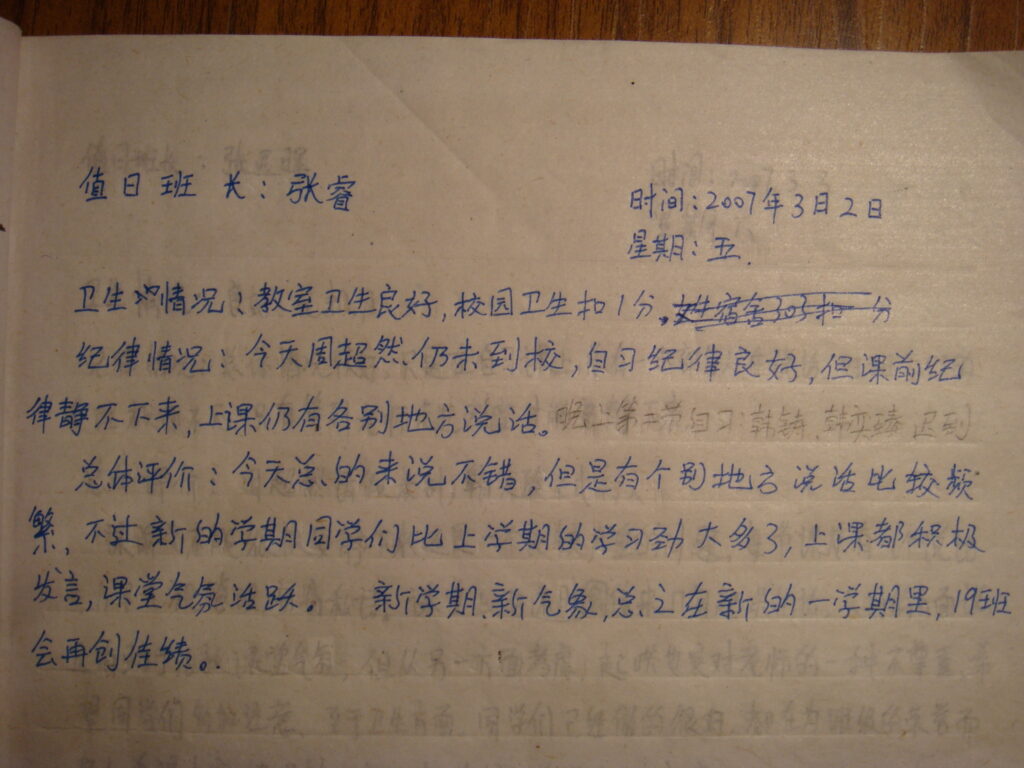 值日班长：张睿
时间：2007年3月2日
星期：五.
卫生情况：教室卫生良好，校园卫生扣1分。女生宿舍303扣一分
纪律情况：今天周超然仍未到校，自习纪律良好，但课前纪
律静不下来，上课仍有各别地方说话。晚上第三节自习韩铸、韩奕臻迟到
总体评价：今天总的来说不错，但是有个别地方说话比较频
繁，不过新的学期同学们比上学期的学习劲大多了，上课都积极
发言，课堂气氛活跃。 新学期、新气象，总之在新的一学期里，19班
会再创佳绩。